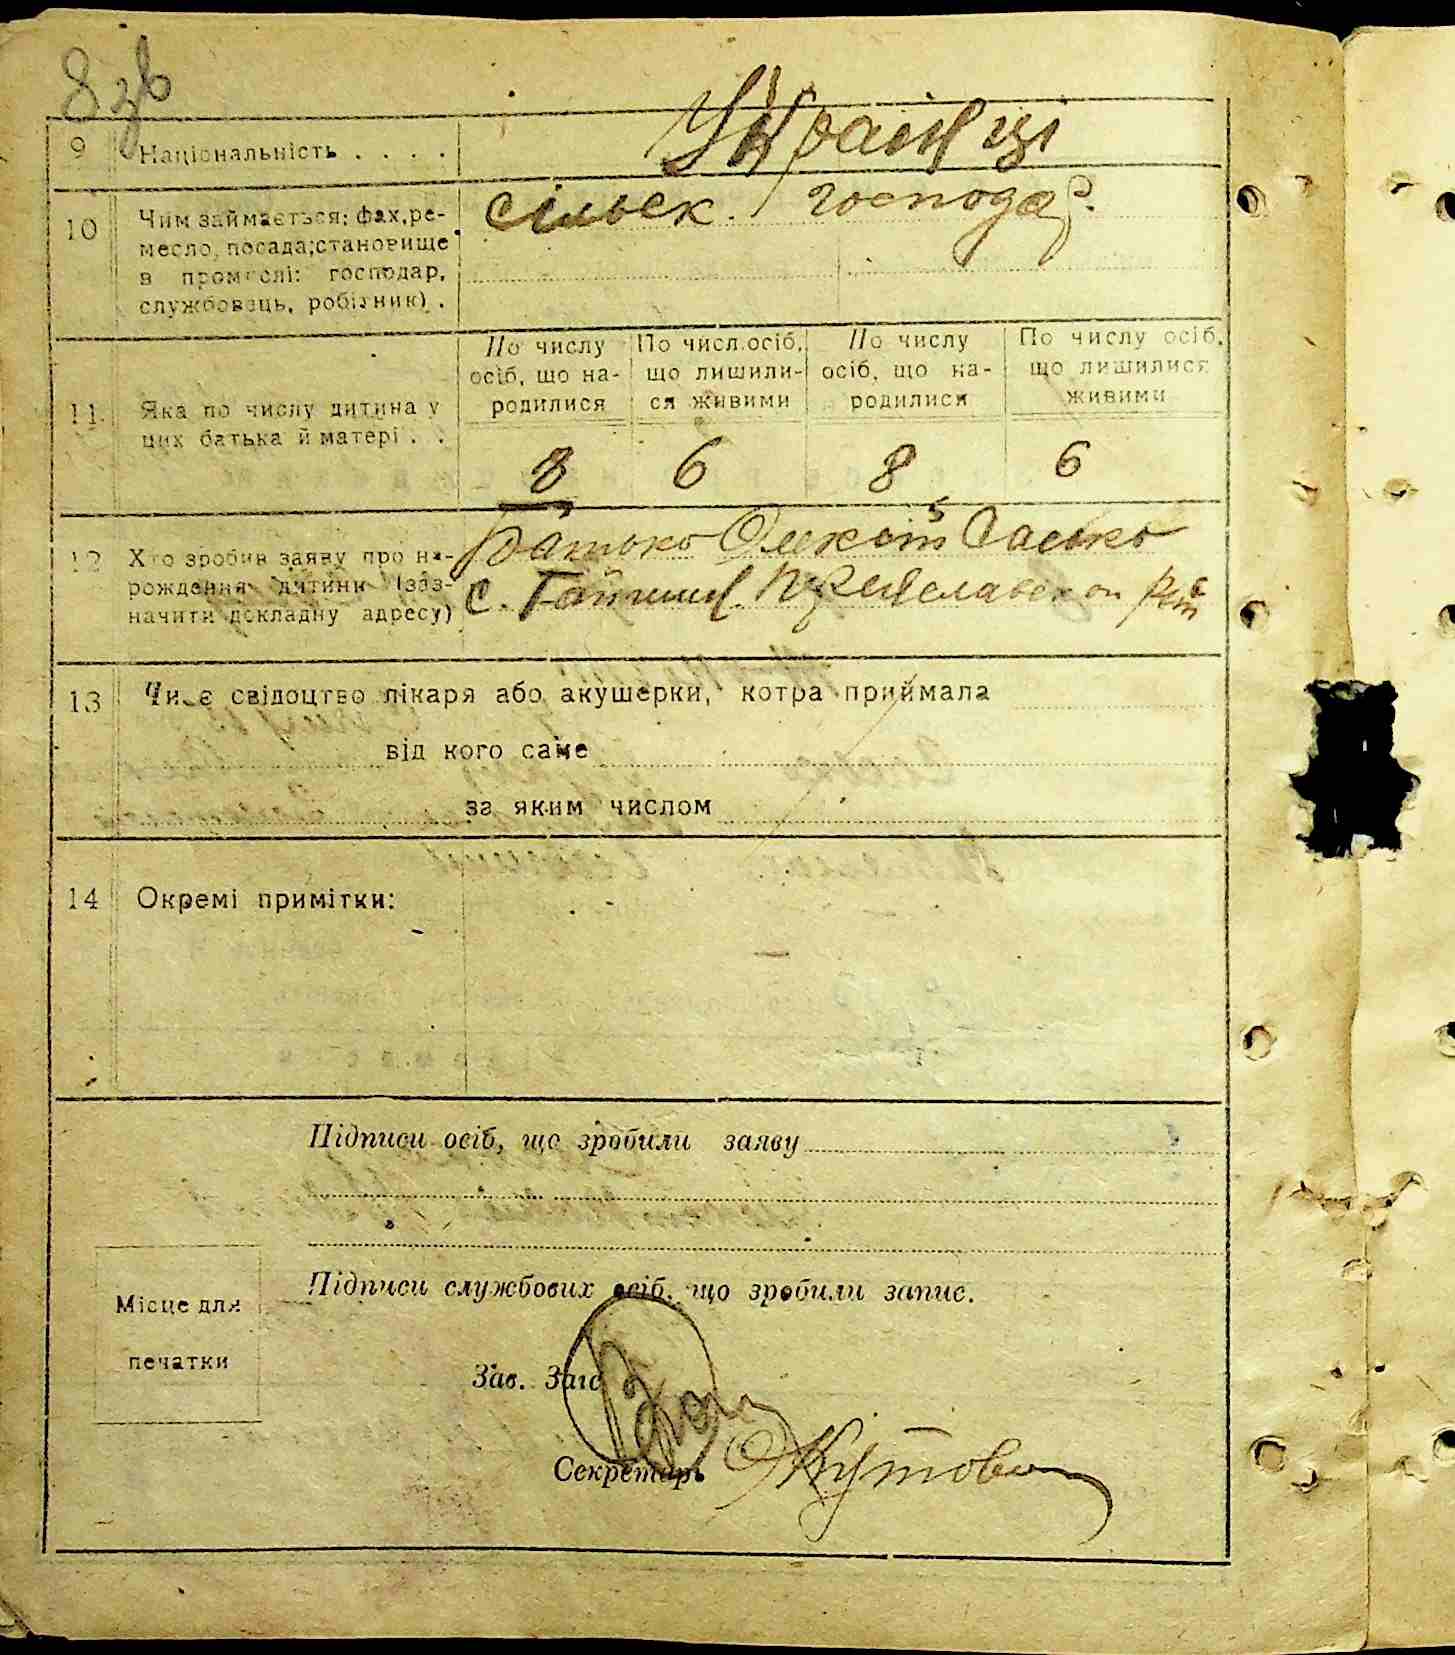 8зв
9 Національність . . . . Українці
10 Чим займається; фах, ре-
месло, посада; становище
в промислі: господар,
службовець, робітник) .
сільск. господар.
По числу осіб, що на-
родилися
По числ. осіб, що лишили-
ся живими
По числу осіб, що на-
родилися
По числу осіб, що лишилися
живими
11. Яка по числу дитина у
цих батька й матері . .
8 6 8 6
12 Хто зробив заяву про на-
рождення дитини (заз-
начити докладну адресу)
Батько
с. Гайшин
13 Чи є свідоцтво лікаря або акушерки, котра приймала
від кого саме
за яким числом
14 Окремі примітки:
Підписи осіб, що зробили заяву
Підписи службових осіб, що зробили запис.
Місце для
печатки
Зав. Загс
Секретарь